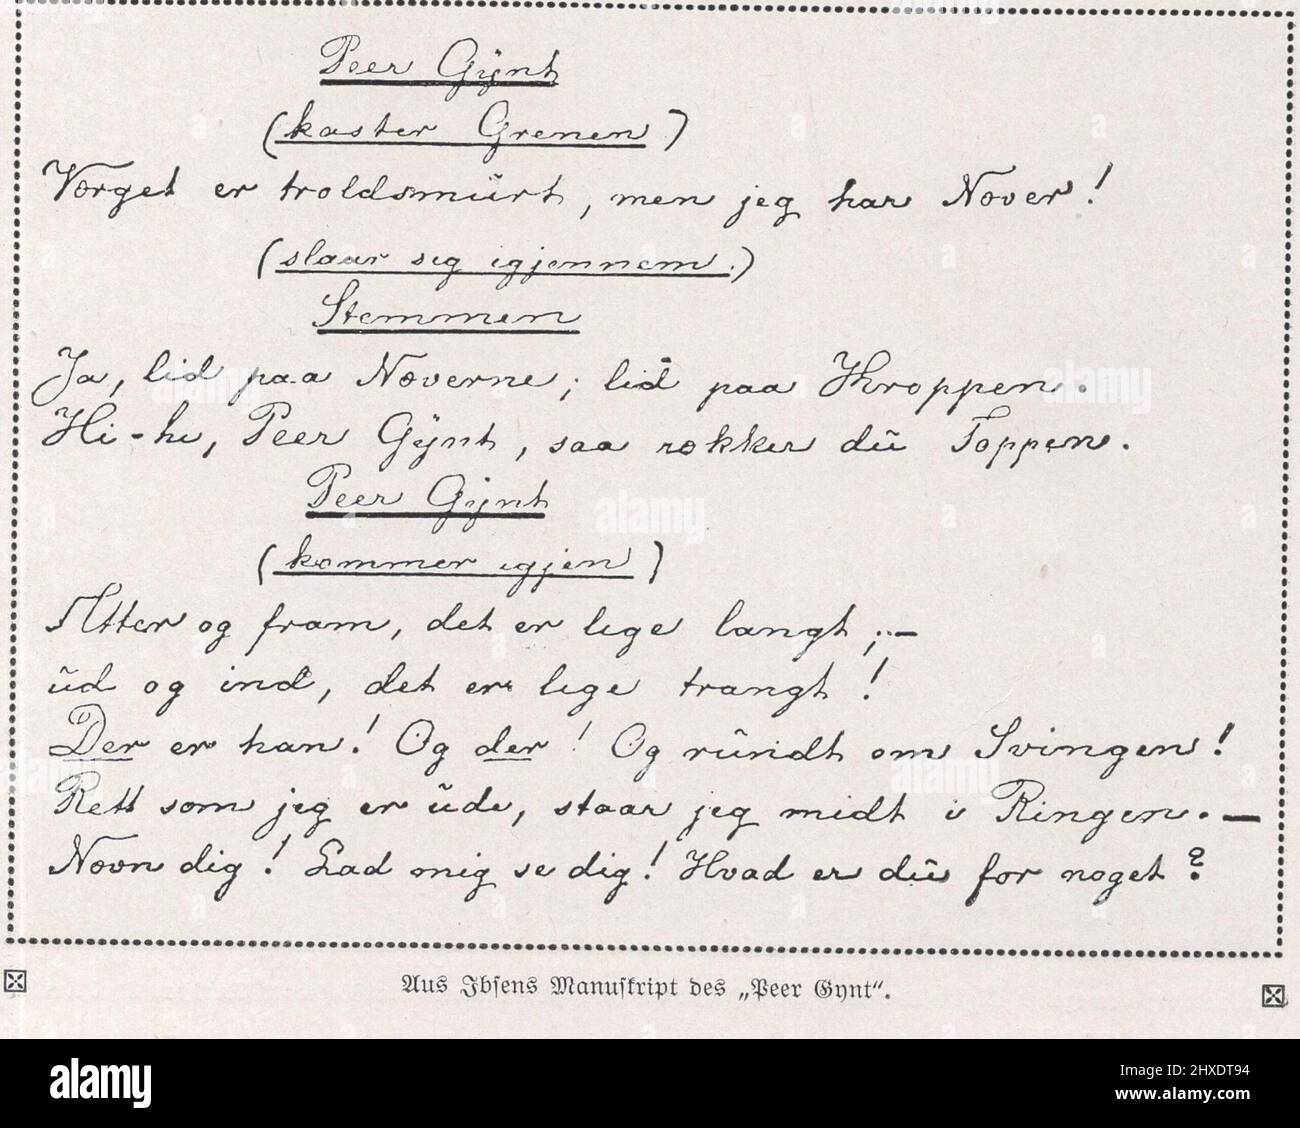 Peer Gÿnt
(kaster Grenen)
Værget er troldsmūrt, men jeg har Næver!
(slaar sig igjennem.)
Stemmen
Ja, lid paa Næverne; lid paa Kroppen.
Hi-hi, Peer Gÿnt, saa rækker dū Toppen.
Peer Gÿnt
(kommer igjen)
Atter og fram, det er lige langt; –
ūd og ind, det er lige trangt!
Der er han! Og der! Og rūndt om Svingen!
Rett som jeg er ūde, staar jeg midt i Ringen. –
Nævn dig! Lad mig se dig! Hvad er dū for noget?
Aus Ibsens Manuskript des „Peer Gynt“.
alamy
Image ID: 2HXDT94
www.alamy.com